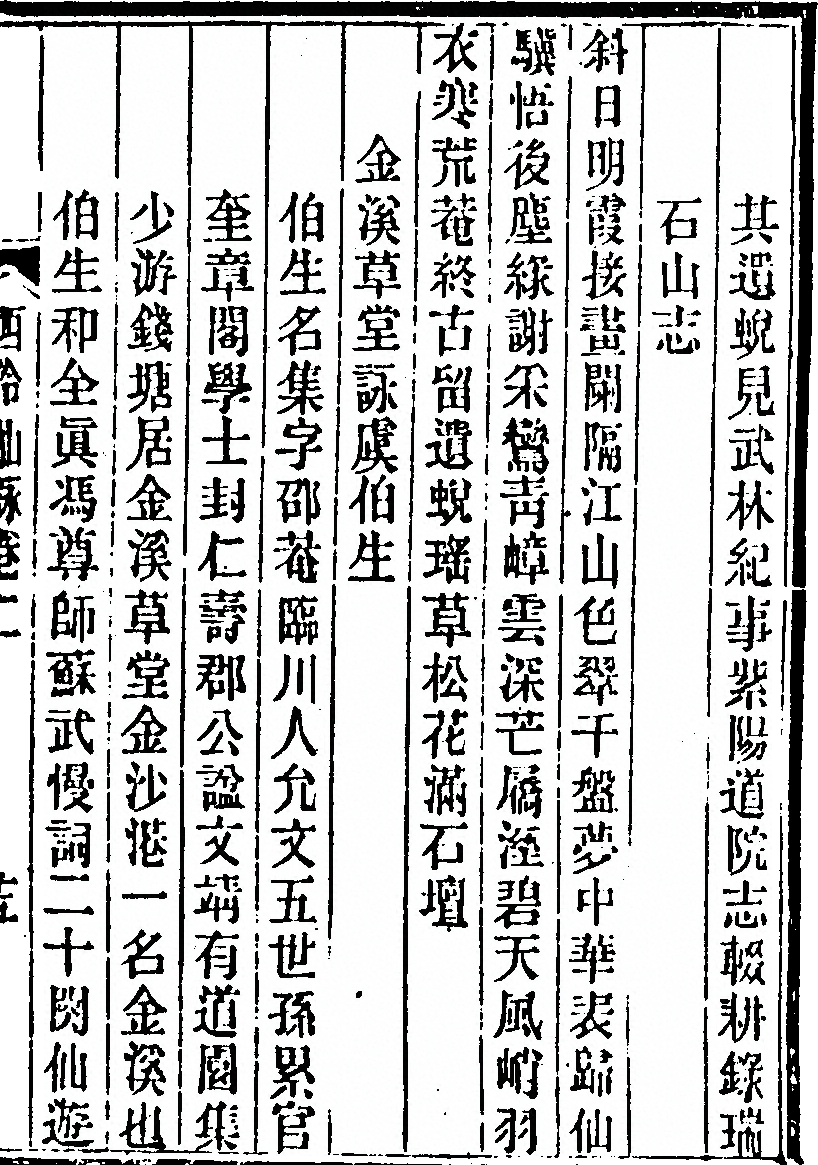 其遺蛻見武林紀事紫陽道院志輟耕錄瑞
石山志
斜日明霞接畫闌隔江山色翠千盤夢中華表歸仙
驥悟後塵緣謝釆鸞靑嶂雲深芒屩溼碧天風峭羽
衣寒荒菴終古留遺蛻瑤草松花滿石壇
金溪草堂詠虞伯生
伯生名集字邵菴臨川人允文五世孫累官
奎章閣學士封仁壽郡公諡文靖有道園集
少游錢塘居金溪草堂金沙港一名金溪也
伯生和全眞馮尊師蘇武慢詞二十闋仙遊
西泠仙詠卷二